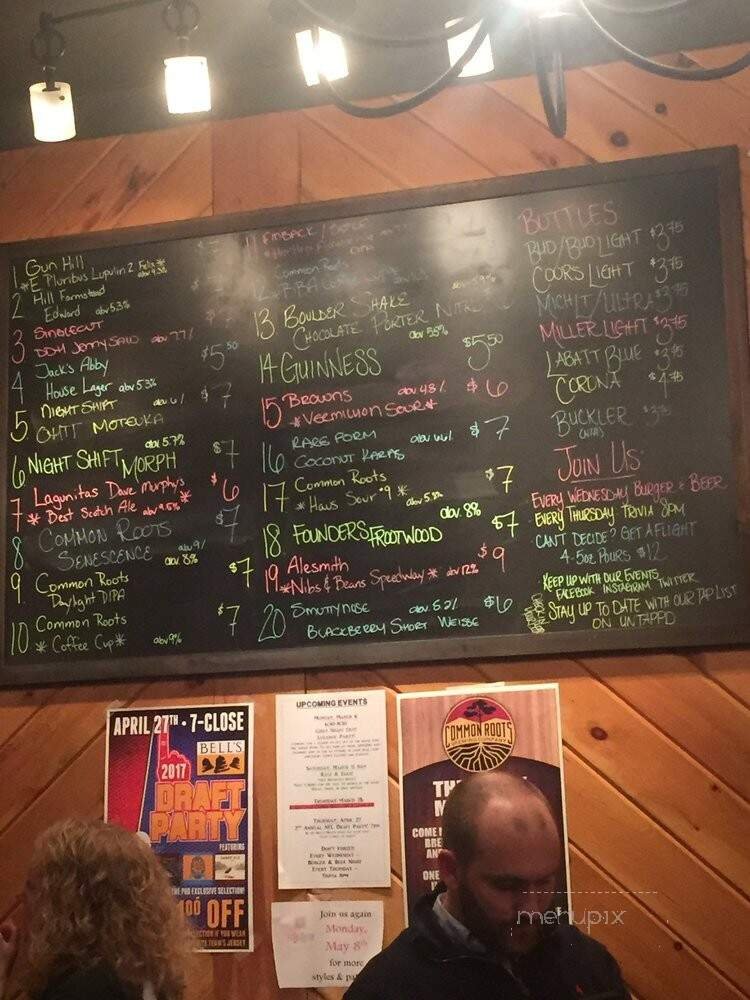 1 Gun Hill
*E Pluribus Lupulin 2 Felix* abv 9.3%
2 Hill Farmstead
Edward abv 5.3%
3 SINGLECUT
DDH JENNY SAID abv 7.7% $7
4 Jack's Abby $5.50
House Lager abv 5.3%
5 NIGHT SHIFT $7
OHTT MOTEUKA
abv 5.7%
6 NIGHT SHIFT MORPH $7
7 Lagunitas Dave Murphys $6
* Best Scotch Ale *
8 COMMON ROOTS $7
SENESCENCE abv 9%
abv. 8% $7
9 Common Roots
Daylight DIPA
10 Common Roots $7
* Coffee Cup * abv 9%
11 FINBACK
12 Common Roots
13 BOULDER SHAKE
CHOCOLATE PORTER NITRO
14 GUINNESS $5.50
15 BROWNS abv 4.8% $6
*VERMILLION SOUR*
16 RARE FORM $7
COCONUT
17 Common Roots $7
* Haus Sour #9 *
abv. 8%
18 FOUNDERS FROOTWOOD $7
19 Alesmith $9
*Nibs & Beans Speedway* abv 12%
20 SMUTTYNOSE abv 5.2% $6
BLACKBERRY SHORT WEISSE
BOTTLES
BUD/BUD LIGHT $3.75
COORS LIGHT $3.75
MICH LT/ULTRA $3.75
MILLER LIGHT $3.75
LABATT BLUE $3.75
CORONA $4.75
BUCKLER
(N/A)
JOIN US
EVERY WEDNESDAY BURGER & BEER
EVERY THURSDAY TRIVIA 8PM
CAN'T DECIDE? GET A FLIGHT
4-5oz POURS $12
KEEP UP WITH OUR EVENTS
FACEBOOK INSTAGRAM TWITTER
STAY UP TO DATE WITH OUR TAP LIST
ON UNTAPPD
APRIL 27TH • 7-CLOSE
BELL'S
2017
DRAFT
PARTY
FEATURING
THE PUB EXCLUSIVE SELECTION!
OFF
SELECTION IF YOU WEAR
TEAM'S JERSEY
UPCOMING EVENTS
Monday, March 6
Saturday, March 11
Thursday, April 27
2nd Annual NFL Draft Party 7pm
Don't Forget!
Every Wednesday -
Burger & Beer Night
Every Thursday -
Trivia 8pm
Join us again
Monday,
May 8th
for more
styles &
COMMON ROOTS
COME
ONE
menupix